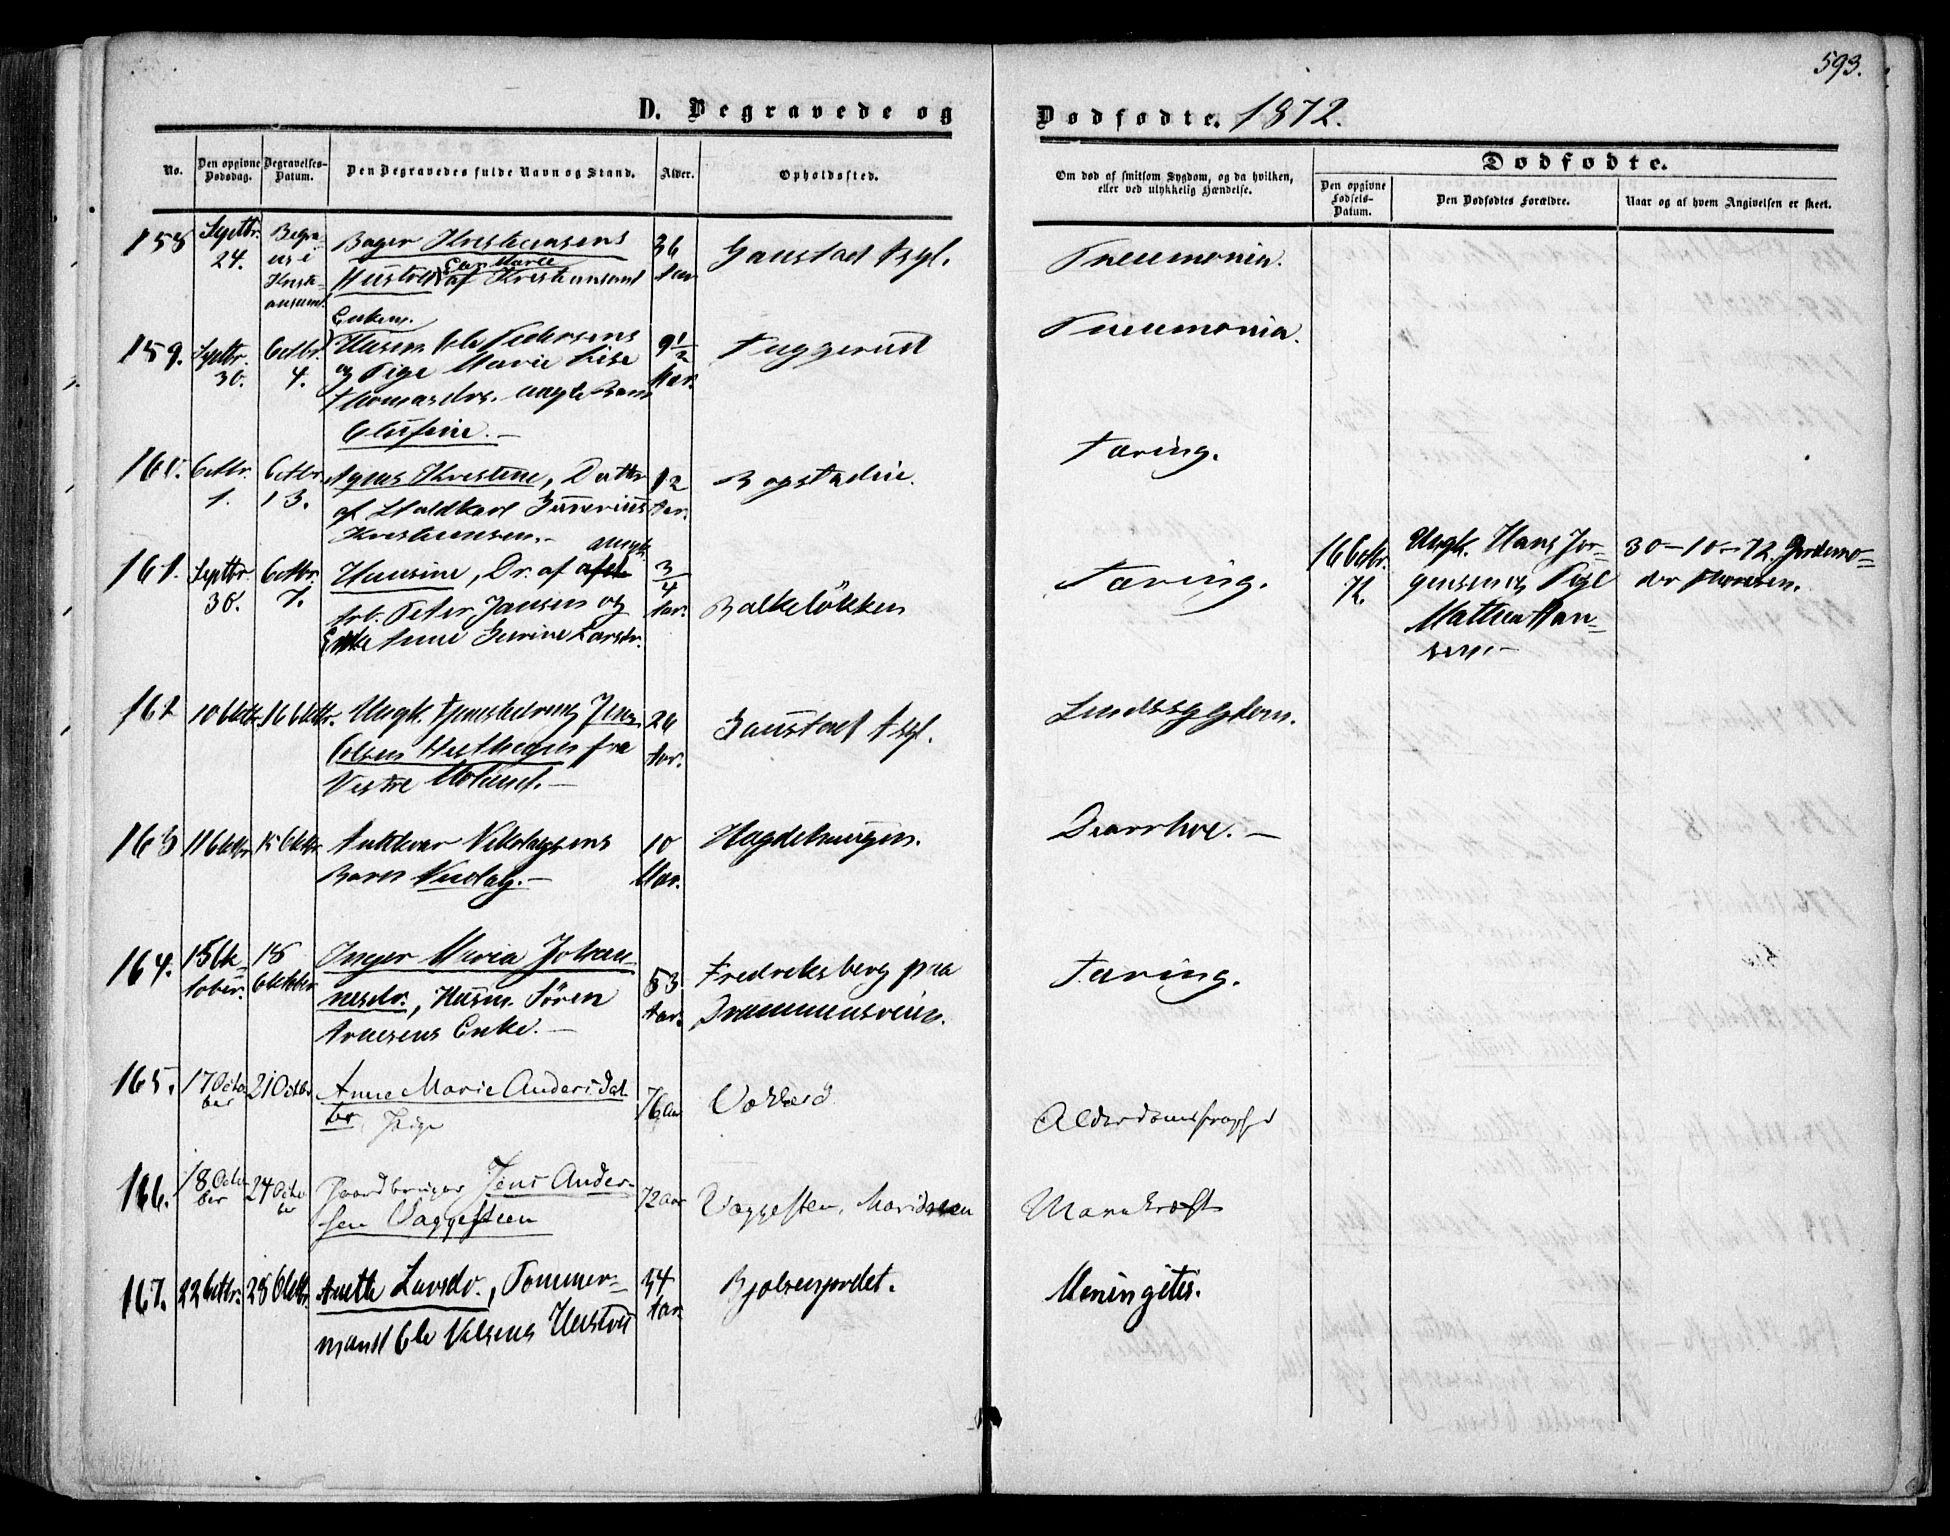 593.
D. Begravede og Dødfødte. 1872.
No.
Den opgivne Dødsdag.
Begravelses-Datum.
Den Begravedes fulde Navn og Stand.
Alder.
Opholdssted.
Om død af smitsom Sygdom, og da hvilken, eller ved ulykkelig Hændelse.
Dødfødte.
Den opgivne Fødsels-Datum.
Den Dødfødtes Forældre.
Naar og af hvem Angivelsen er skeet.
158 Septbr. 24.
Begra-
ves i
Kristi-
ansund
Bager Kristensens
Hustru af Kristiansund
36 Aar
Gaustad Asyl.
Pneumonia.
159. Septbr. 30. Octbr. 4.
Enkem.
Husm. Ole Pedersens
og Pige Marie Lise
Thomasdr. uægte Barn
Olufine.
9½ Mar.
Tuggerud
Pneumonia.
160. Octbr. 1. Octbr. 13.
Agnes Kristine, Datter
af Staldkarl
Kristensen.
12 Aar.
Bogstadvie.
Tæring.
161. Septbr. 30. Octbr. 7.
Hansine, Dr. af
Peter Jansen og
Enke Anne Gurine Larsdr.
3/4 Aar.
Balkeløkken
Tæring.
16 Octbr. 72.
Ungk. Hans Jør-
gensen og Pige
Mathea Han-
sen.
30-10-72. Jordemo-
der Thoresen.
162 10 Oktbr. 16 Oktbr.
Ungk. Tjenestedreng Jens
Olsen fra
Vestre Moland.
26 Aar.
Gaustad Asyl.
Sindssygdom.
163 11 Oktbr. 15 Oktbr.
Nikolaysens
Barn Nicolay.
10 Mar.
Magdeburgen.
Diarrhoe.
164. 15 Ok-
tober. 18 Oktober
Inger Maria Johan-
nesdr., Husm. Søren
Arnesens Enke.
53 Aar.
Fredriksberg paa
Drammensveien.
Tæring.
165. 17 Octo-
ber 21 Octbr.
Anne Marie Andersdat-
ter, Pige
76 Aar
Vækkerø
Alderdomssvaghed
166. 18 Octo-
ber 24 Octo-
ber
Gaardbruger Jens Ander-
sen Vaggesteen
72 aar
Vaggesten, Maridalen
Mavekræft
167. 22 Octbr. 28 Oktbr.
Anette Larsdr., Tømmer-
mand Ole Nilsens Hustru
54 Aar
Bjølsenjordet.
Meningitis.